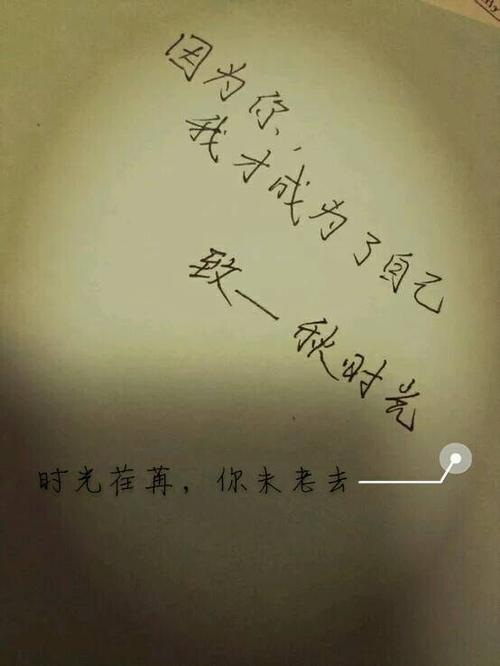 因为你,
我才成为了自己
致一秋时光
时光荏苒，你未老去